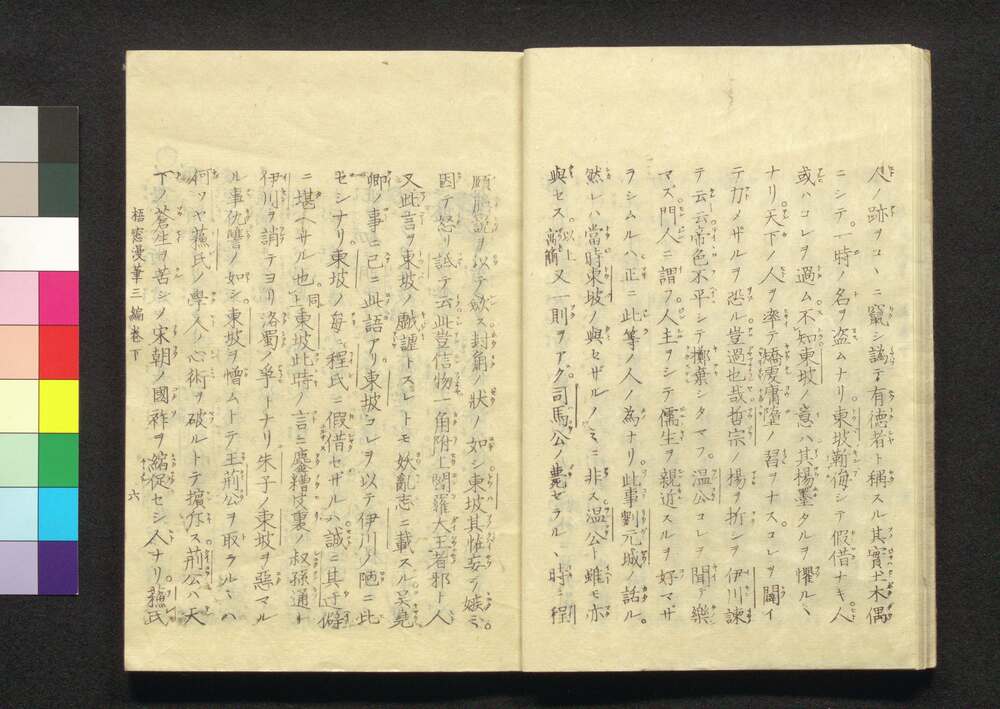 人ノ跡ヲコヽニ竄シ謟テ有德者ト稱スル其實土木偶
ニシテ一時ノ名ヲ盜ムナリ東坡斬侮シテ假借ナキ人
或ハコレヲ過ム不知東坡ノ意ハ其楊墨タルヲ懼ルヽ
ナリ天下ノ人ヲ率テ矯虔庸墮ノ習ヲナスコレヲ聞イ
テ力メザルヲ恐ル豈過也哉哲宗ノ楊ヲ折シヲ伊川諫
テ云云帝色不平シテ擲棄シタマフ温公コレヲ聞テ樂
マズ門人ニ謂フ人主ヲシテ儒生ヲ親近スルヲ好マザ
ラシムルハ正ニ此等ノ人ノ為ナリ此事劉元城ノ話ル
然レハ當時東坡ノ與セザルノミニ非ス温公ト雖モ亦
與セス以上又一則ヲアグ司馬公ノ薨ゼラルヽ時ニ程
頤臆說ヲ以テ歛ス封角ノ狀ノ如シ東坡其怪妄ヲ嫉ミ
因テ怒リ詆テ云此豈信物一角附上閻羅大王者邪ト人
又此言ヲ東坡ノ戲謔トスレトモ妖亂志ニ載スル吴堯
卿ノ事ニ已ニ此語アリ東坡コレヲ以テ伊川ノ陋ニ比
セシナリ東坡ノ每ニ程氏ニ假借セザルハ誠ニ其ノ僻
ニ堪ヘサル也同上東坡此時ノ言ニ鏖糟陂裏ノ叔孫通ト
伊川ヲ誚テヨリ洛蜀ノ爭トナリ朱子ノ東坡ヲ惡マル
ル事仇讐ノ如シ東坡ヲ憎ムトテ王荊公ヲ取ラルヽハ
何ソヤ蘓氏ノ學人ノ心術ヲ破ルトテ擯斥ス荊公ハ天
下ノ蒼生ヲ苦シメ宋朝ノ國祚ヲ縮促セシ人ナリ蘓氏
梧窓漫筆三編卷下 六